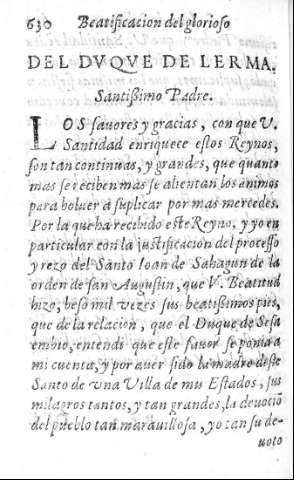 630 Beatificacion del glorioso
DEL DVQVE DE LERMA.
Santißimo Padre.
LOS fauores y gracias, con que V.
Santidad enriquece estos Reynos,
son tan continuas, y grandes, que quanto
mas se reciben mas se alientan los animos
para boluer a suplicar por mas mercedes.
Por la que ha recibido este Reyno, y yo en
particular con la justificacion del processo
y rezo del Santo Ioan de Sahagun de la
orden de san Augustin, que V. Beatitud
hizo, beso mil vezes sus beatißimos pies,
que de la relacion, que el Duque de Sesa
embio, entendi que este fauor se ponia a
mi cuenta, y por auer sido la madre deste
Santo de vna Villa de mis Estados, sus
milagros tantos, y tan grandes, la deuociō
del pueblo tan marauillosa, yo tan su de-
uoto